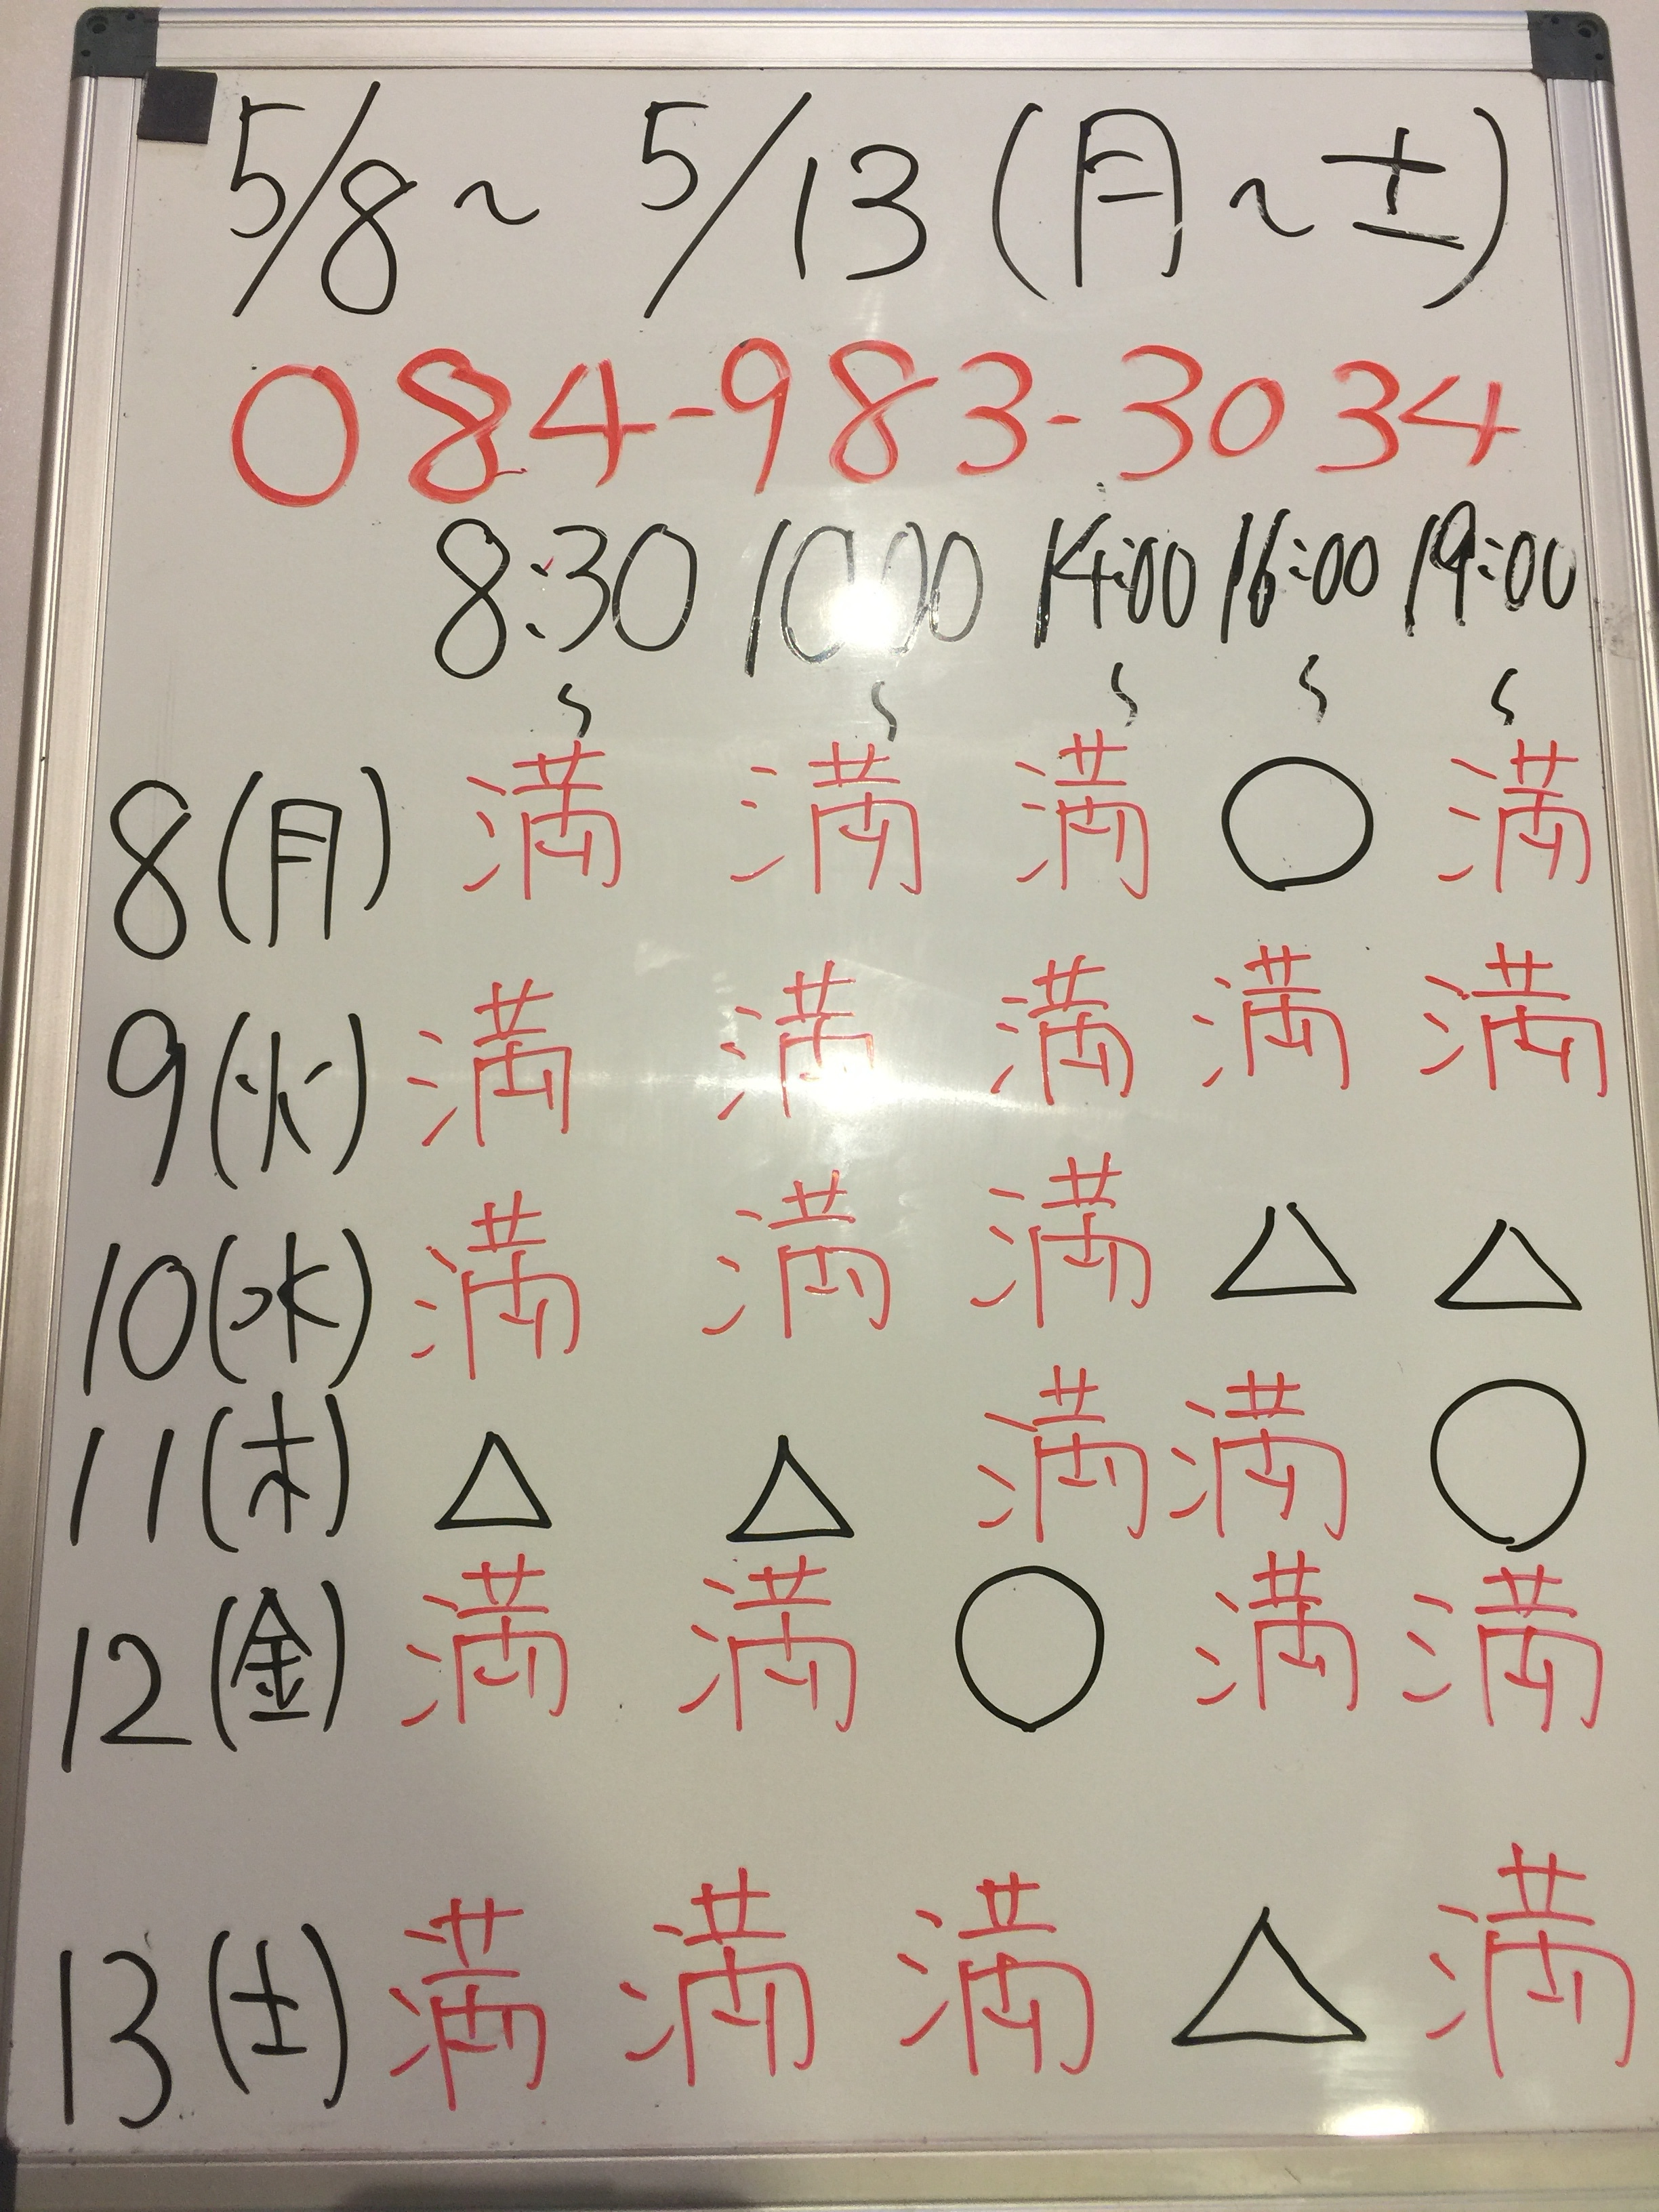 5/8～5/13(月～土)
084-983-3034
8:30 10:00 14:00 16:00 19:00
〜 〜 〜 〜 〜
8(月) 満 満 満 ○ 満
9(火) 満 満 満 満 満
10(水) 満 満 満 △ △
11(木) △ △ 満 満 ○
12(金) 満 満 ○ 満 満
13(土) 満 満 満 △ 満